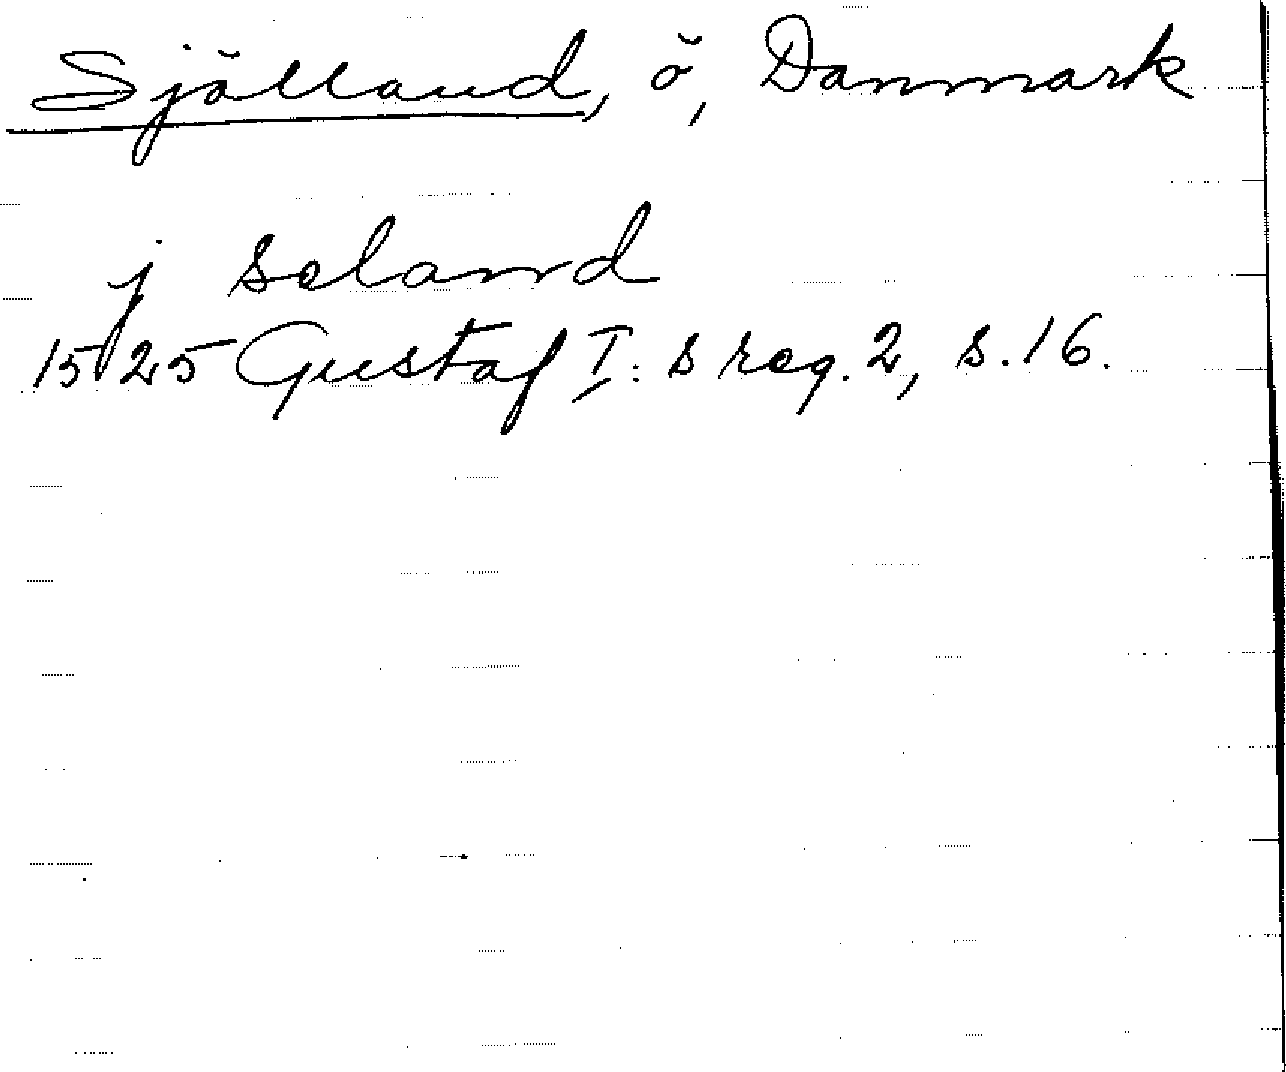 Själland, ö, Danmark
j seland
1525 Gustaf I:s reg. 2, s. 16.